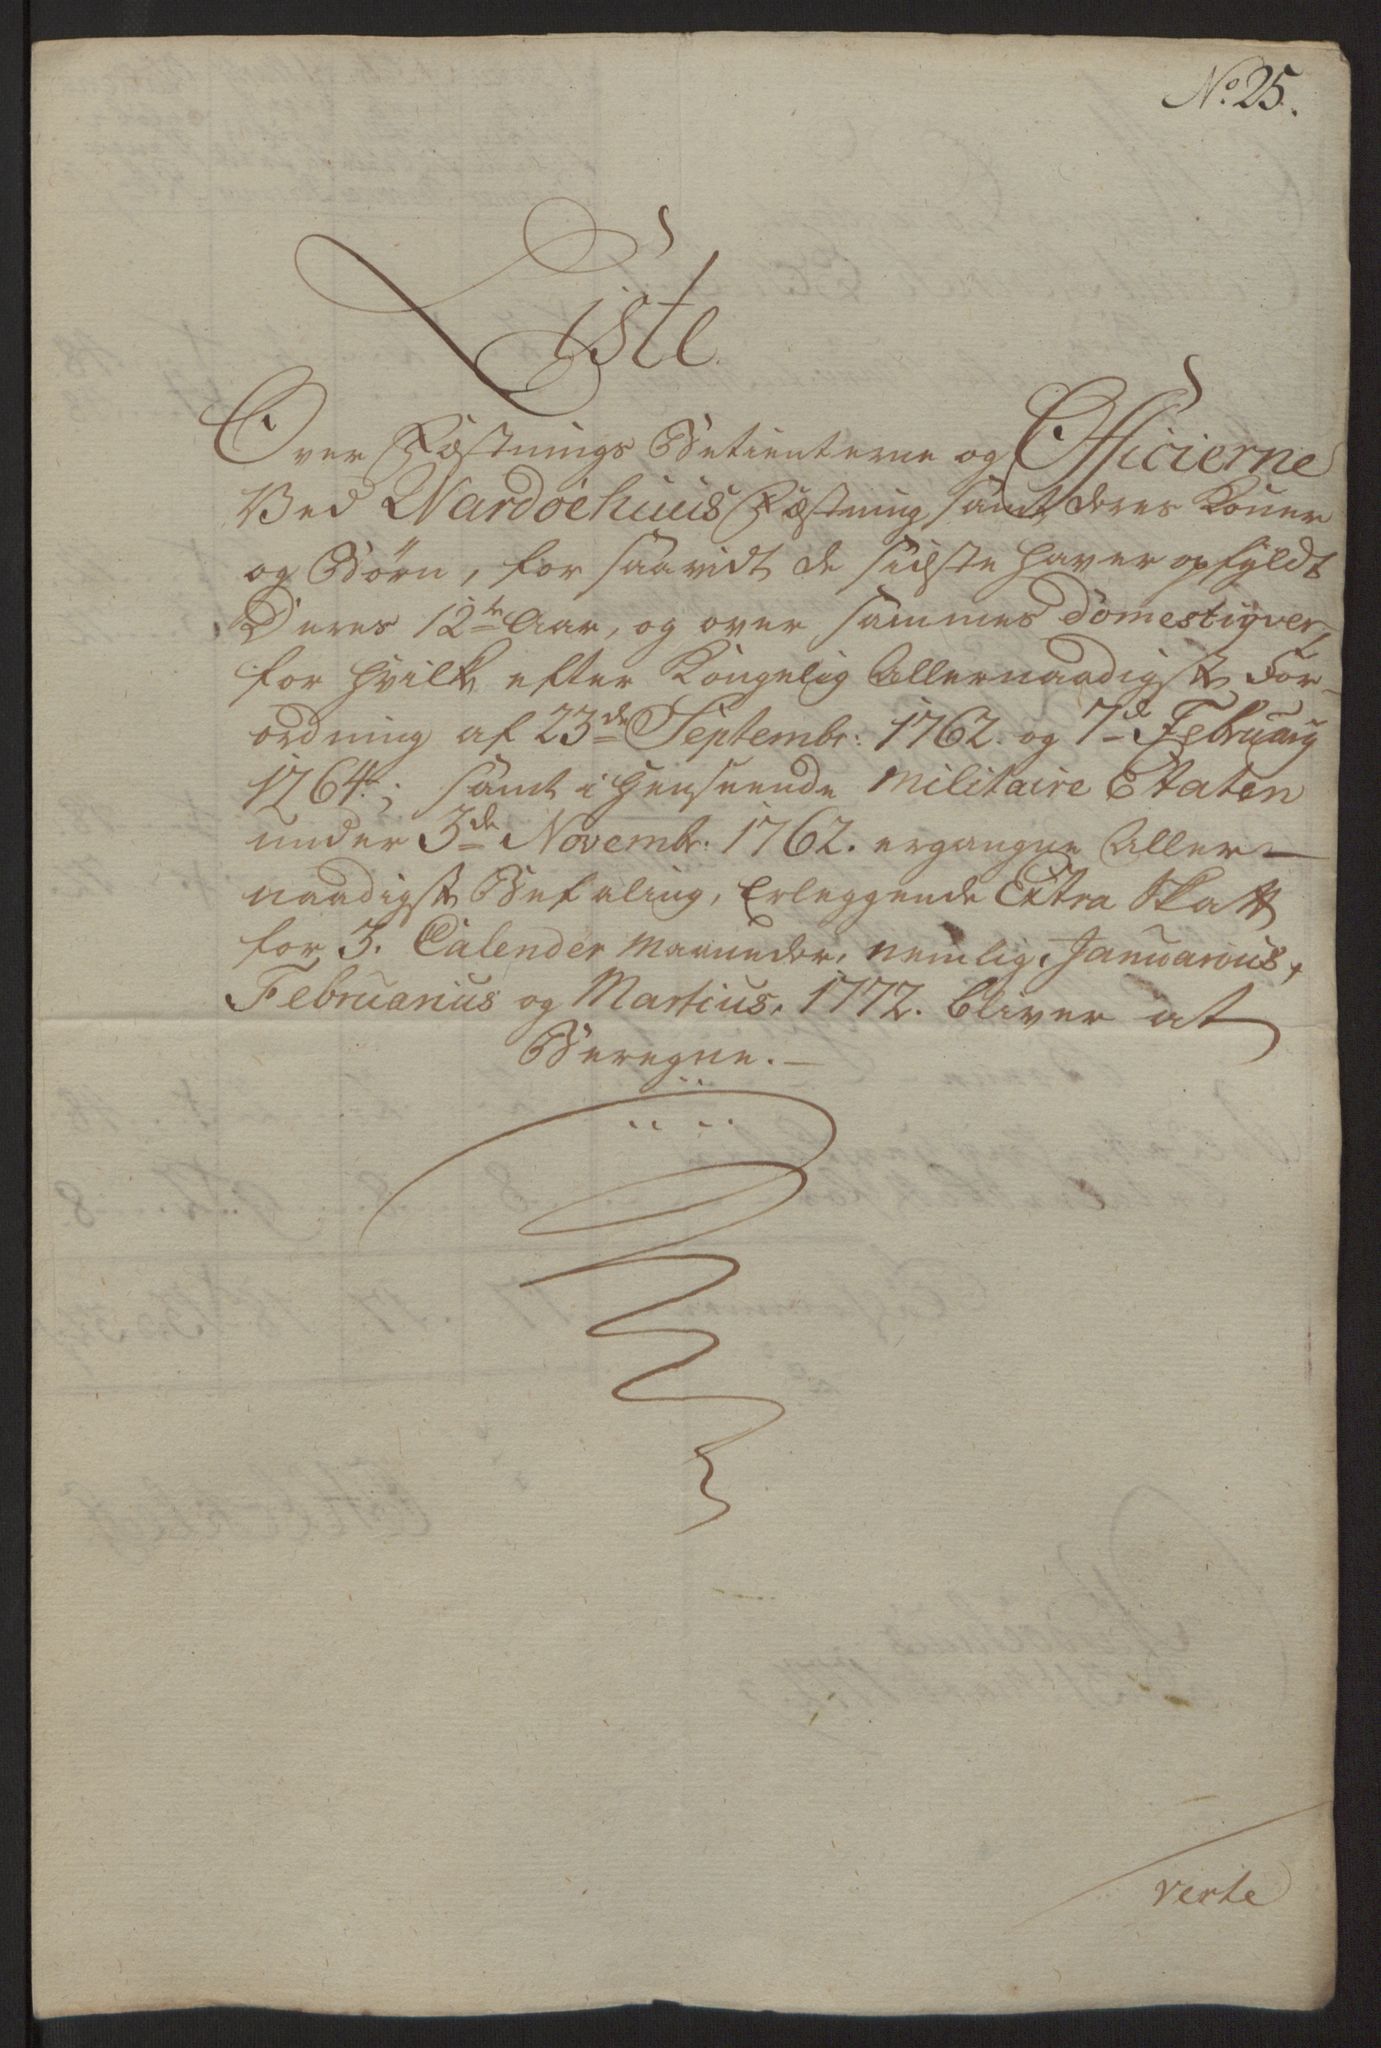 No. 25.
Liste
Over Fæstnings Betienterne og Officierne
Ved Wardoehuus Fæstning, samt deres Koner
og Börn, for saavidt de sidste haver opfyldt
Deres 12te Aar, og over sammes Domestiqver,
for hvilke efter Kongelig Allernaadigste For-
ordning af 23de Septembr: 1762. og 7de February
1764.; samt i Henseende Militaire Etaten
under 3de Novembr: 1762. ergangne Aller-
naadigste Befaling, Erleggende Extra Skatt
for 3. Calender Maaneder, nemlig, Januarius,
Februarius og Martius, 1772. bliver at
Beregne.
verte